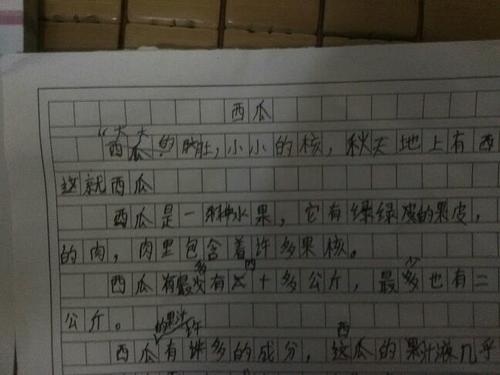 西瓜
“大大的肚肚，小小的核，秋天地上有西
这就西瓜
西瓜是一种水果，它有绿绿皮的果皮，
的肉，肉里包含着许多果核。
西瓜有最多有四十多公斤，最少也有二
公斤。
西瓜的果汁有许多的成分，西瓜的果汁液几乎